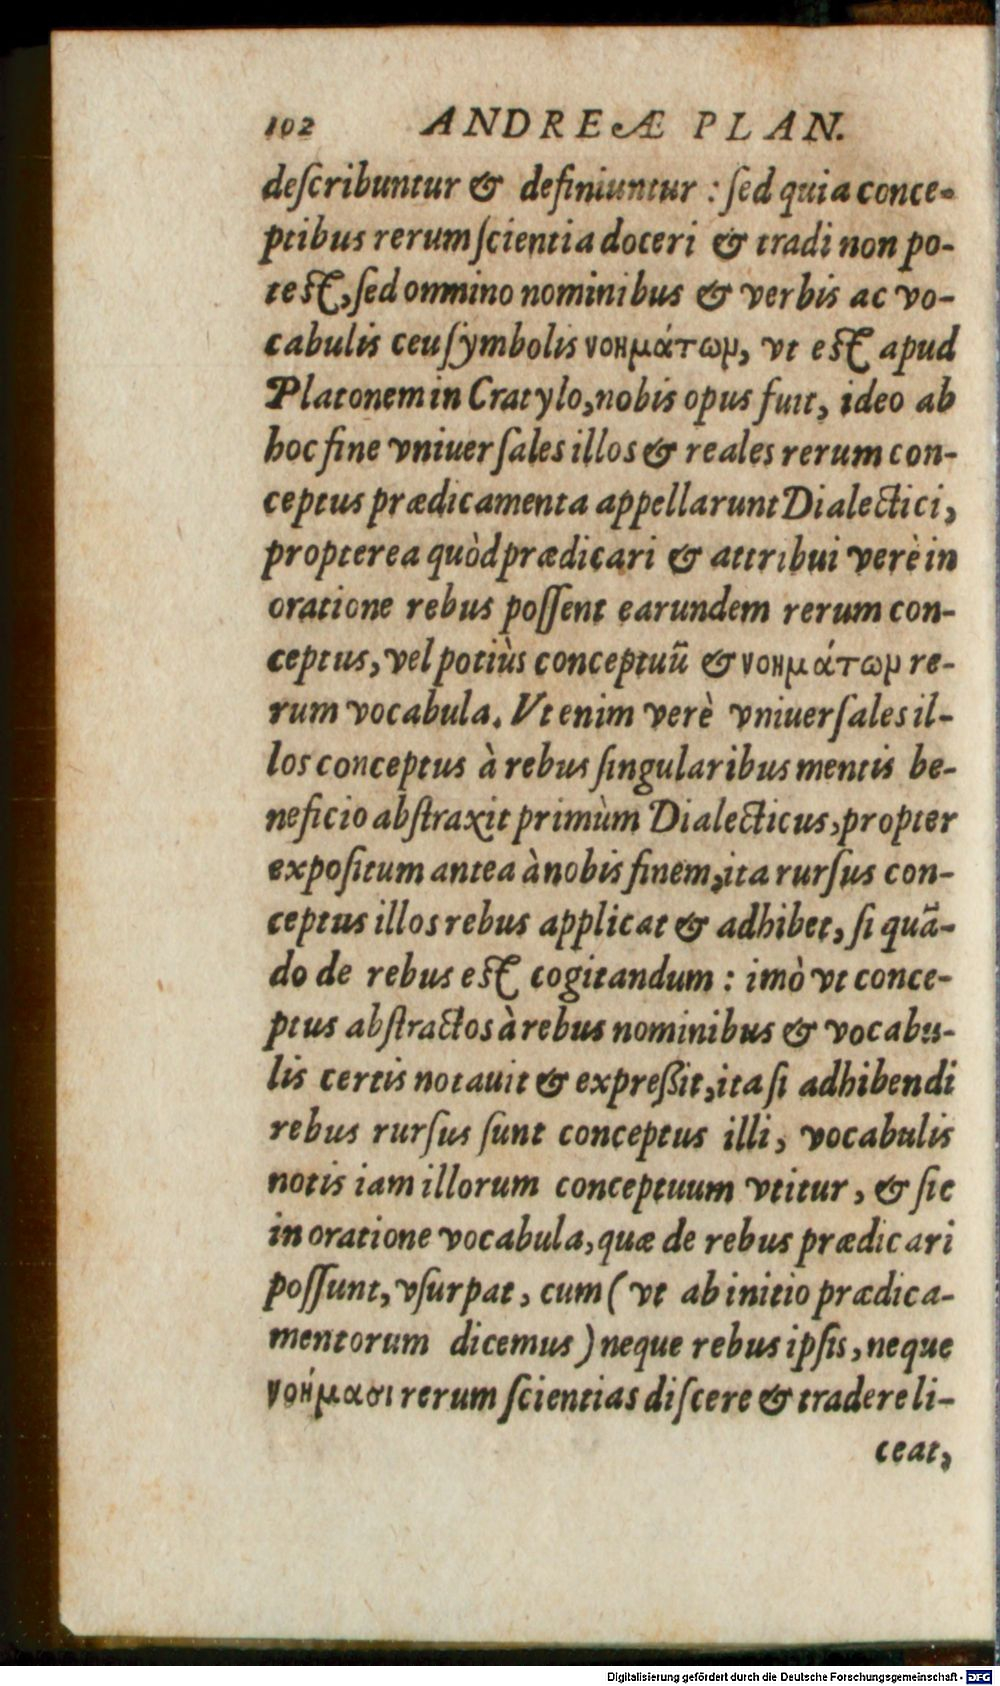 102 ANDREÆ PLAN.
deſcribuntur & definiuntur : ſed quia conce-
ptibus rerum ſcientia doceri & tradi non po-
teſt, ſed omnino nominibus & verbis ac vo-
cabulis ceu ſymbolis νοημάτωμ, vt eſt apud
Platonem in Cratylo, nobis opus fuit, ideo ab
hoc fine vniuerſales illos & reales rerum con-
ceptus prædicamenta appellarunt Dialectici,
propterea quòd prædicari & attribui verè in
oratione rebus poſſent earundem rerum con-
ceptus, vel potiùs conceptuũ & νοημάτωμ re-
rum vocabula. Vt enim verè vniuerſales il-
los conceptus à rebus ſingularibus mentis be-
neficio abſtraxit primùm Dialecticus, propter
expoſitum antea à nobis finem, ita rurſus con-
ceptus illos rebus applicat & adhibet, ſi quã-
do de rebus eſt cogitandum : imò vt conce-
ptus abſtractos à rebus nominibus & vocabu-
lis certis notauit & expreßit, ita ſi adhibendi
rebus rurſus ſunt conceptus illi, vocabulis
notis iam illorum conceptuum vtitur, & ſic
in oratione vocabula, quæ de rebus prædicari
poſſunt, vſurpat, cum ( vt ab initio prædica-
mentorum dicemus ) neque rebus ipſis, neque
νοήμασι rerum ſcientias diſcere & tradere li-
ceat,
Digitalisierung gefördert durch die Deutsche Forschungsgemeinschaft - DFG